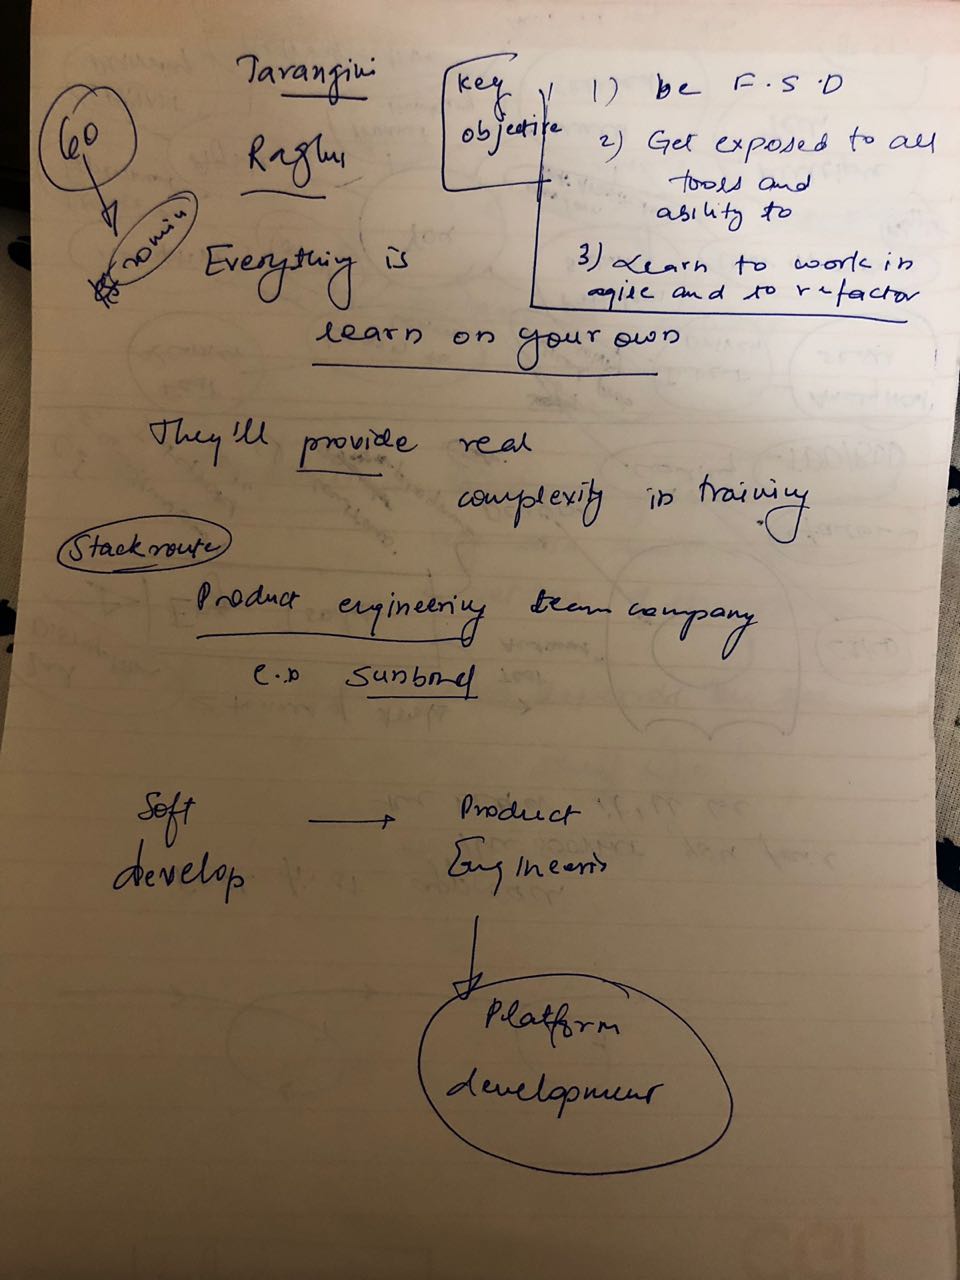 Tarangini
Raghu
60
20 min
Key
objective
1) be F.S.D
2) Get exposed to all
tools and
ability to
3) Learn to work in
agile and to refactor
Everything is
learn on your own
They'll provide real
complexity in training
Stack route
Product engineering team company
e.g Sunbird
Soft
develop
Product
Engineers
Platform
development